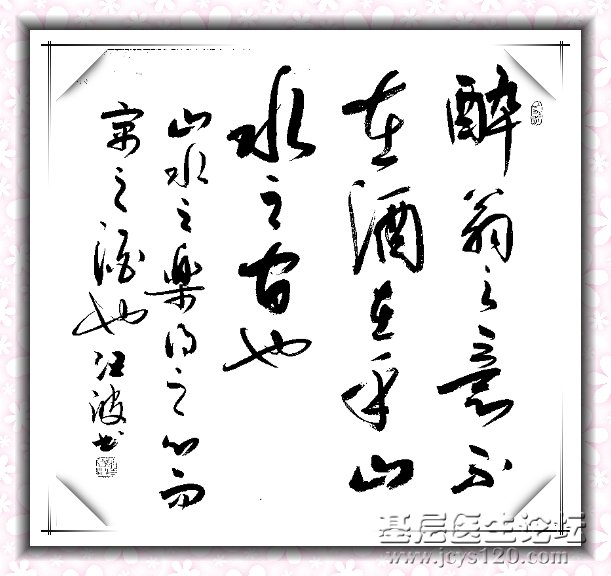 醉翁之意不
在酒在乎山
水之间也
山水之樂得之心而
寓之酒也汪波书
基层医生论坛
www.jcys120.com